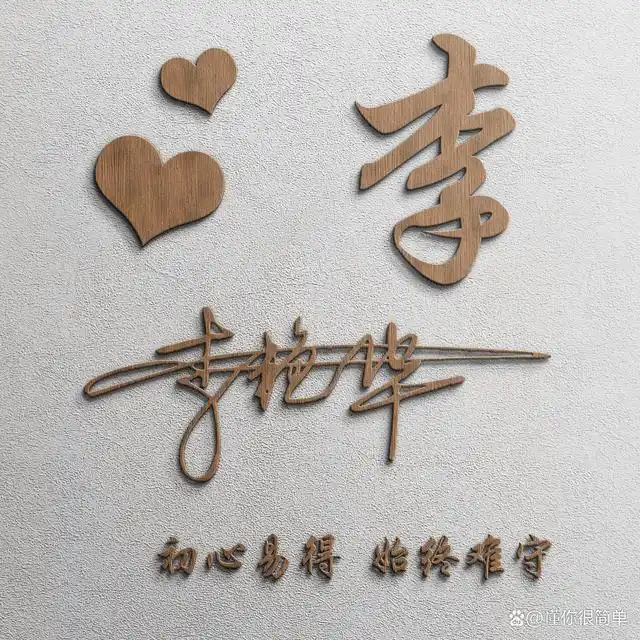 李
李艳华
初心易得 始终难守
@懂你很简单